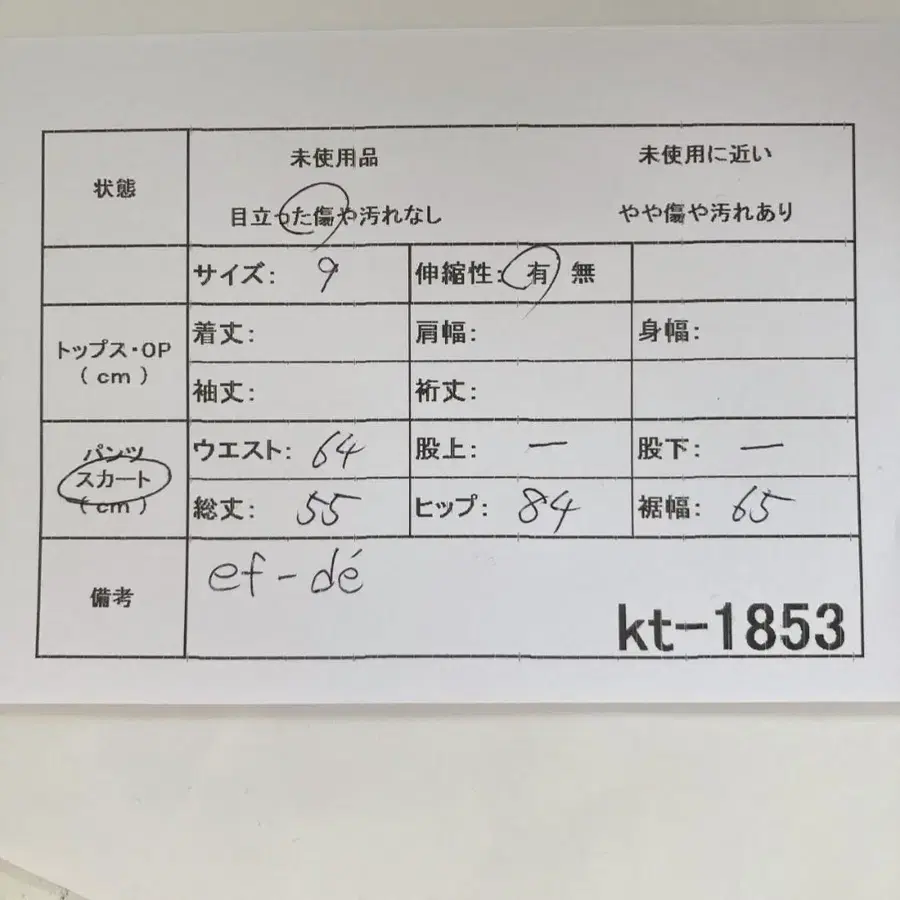 状態
未使用品 未使用に近い
目立った傷や汚れなし やや傷や汚れあり
サイズ: 9 伸縮性: 有 無
トップス・OP
( cm )
着丈: 肩幅: 身幅:
袖丈: 裄丈:
パンツ
スカート
( cm )
ウエスト: 64 股上: ー 股下: ー
総丈: 55 ヒップ: 84 裾幅: 65
備考
ef-dé
kt-1853